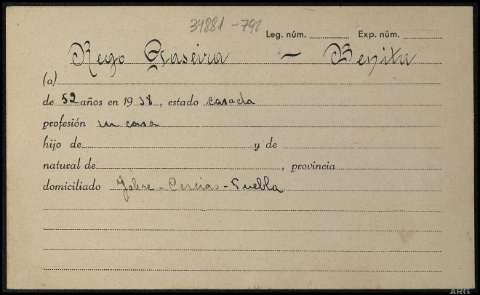 31881-792
Leg. núm. Exp. núm.
Rego Graseira - Benita
(a)
de 52 años en 1938, estado casada
profesión su casa
hijo de y de
natural de , provincia
domiciliado Jobre - - Puebla
ARG